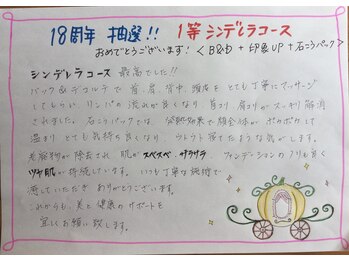 18周年 抽選!! 1等シンデレラコース
おめでとうございます! < B&D + 印象UP + 石こうパック >
シンデレラコース 最高でした!!
バック&デコルテで 首、肩、背中、頭皮を とても丁寧にマッサージ
してもらい リンパの流れが良くなり 首コリ 肩コリがスッキリ解消
されました。石こうパックでは、発熱効果で顔全体が ポカポカして
温まり とても気持ち良くなり ウトウト寝てたような気がします。
老廃物が 除去され 肌が スベスベ サラサラ ファンデーションのノリも良く
ツヤ肌が持続しています。いつも丁寧な施術で
癒していただき ありがとうございます。
これからも、美と健康のサポートを
宜しくお願い致します。